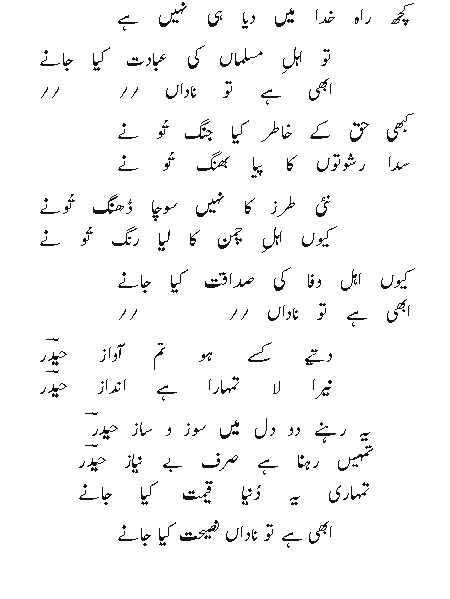 کچھ راہ خدا میں دیا ہی نہیں ہے
تو اہلِ مسلماں کی عبادت کیا جانے
ابھی ہے تو ناداں // //
کبھی حق کے خاطر کیا جنگ تُو نے
سدا رشوتوں کا پیا بھنگ تُو نے
نئی طرز کا نہیں سوچا ڈھنگ تُونے
کیوں اہلِ چمن کا لیا رنگ تُو نے
کیوں اہل وفا کی صداقت کیا جانے
ابھی ہے تو ناداں // //
دیتے کسے ہو تم آواز حیدؔر
نیرا لا تمہارا ہے انداز حیدؔر
یہ رہنے دو دل میں سوز و ساز حیدؔر
تمہیں رہنا ہے صرف بے نیاز حیدؔر
تمہاری یہ دُنیا قیمت کیا جانے
ابھی ہے تو ناداں نصیحت کیا جانے